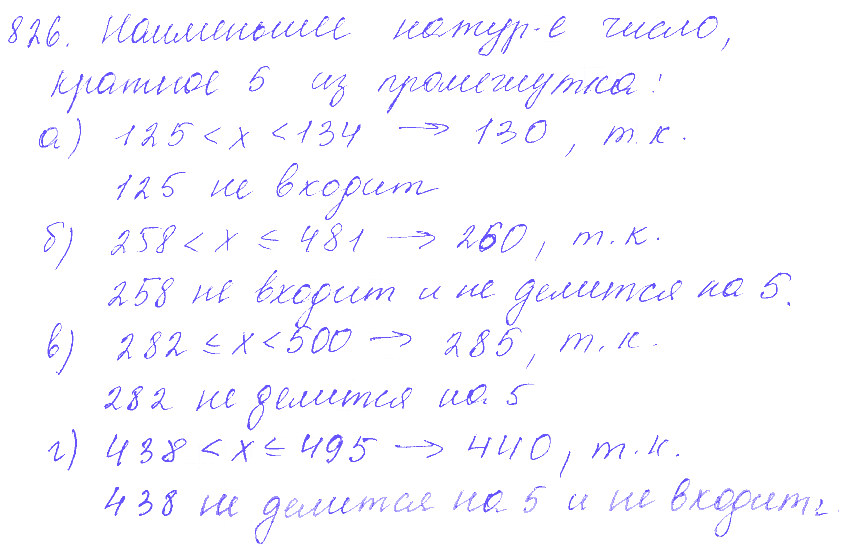 826. Наименьшее натур-е число,
кратное 5 из промежутка:
а) 125 < x < 134 → 130, т.к.
125 не входит
б) 258 < x ≤ 481 → 260, т.к.
258 не входит и не делится на 5.
в) 282 ≤ x < 500 → 285, т.к.
282 не делится на 5
г) 438 < x ≤ 495 → 440, т.к.
438 не делится на 5 и не входит.